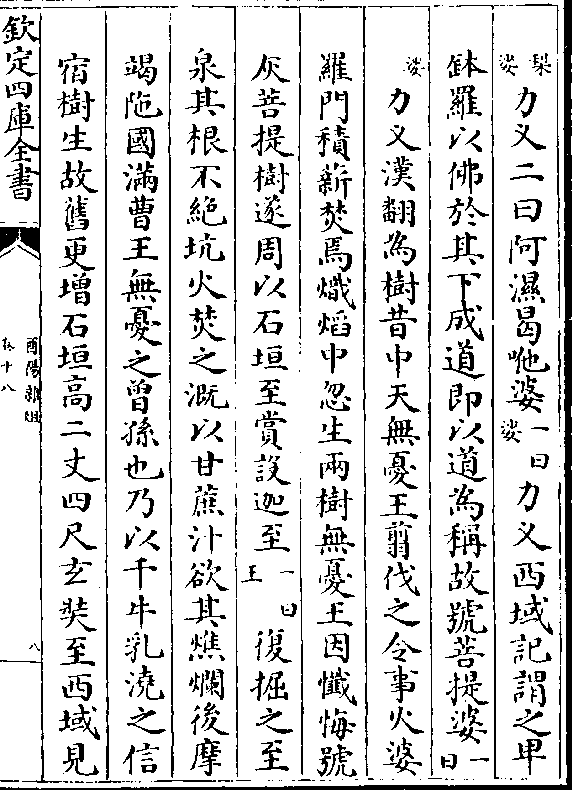 梨婆力义二曰阿濕曷咃婆一曰婆力义西域記謂之卑
鉢羅以佛於其下成道即以道為稱故號菩提婆一曰
婆力义漢翻為樹昔中天無憂王翦伐之令事火婆
羅門積薪焚焉熾熖中忽生兩樹無憂王因懺悔號
灰菩提樹遂周以石垣至賞設迦至一曰王復掘之至
泉其根不絶坑火焚之溉以甘蔗汁欲其燋爛後摩
竭陁國滿曹王無憂之曾孫也乃以千牛乳澆之信
宿樹生故舊更增石垣高二丈四尺玄奘至西域見
欽定四庫全書
酉陽雜俎
卷十八
八